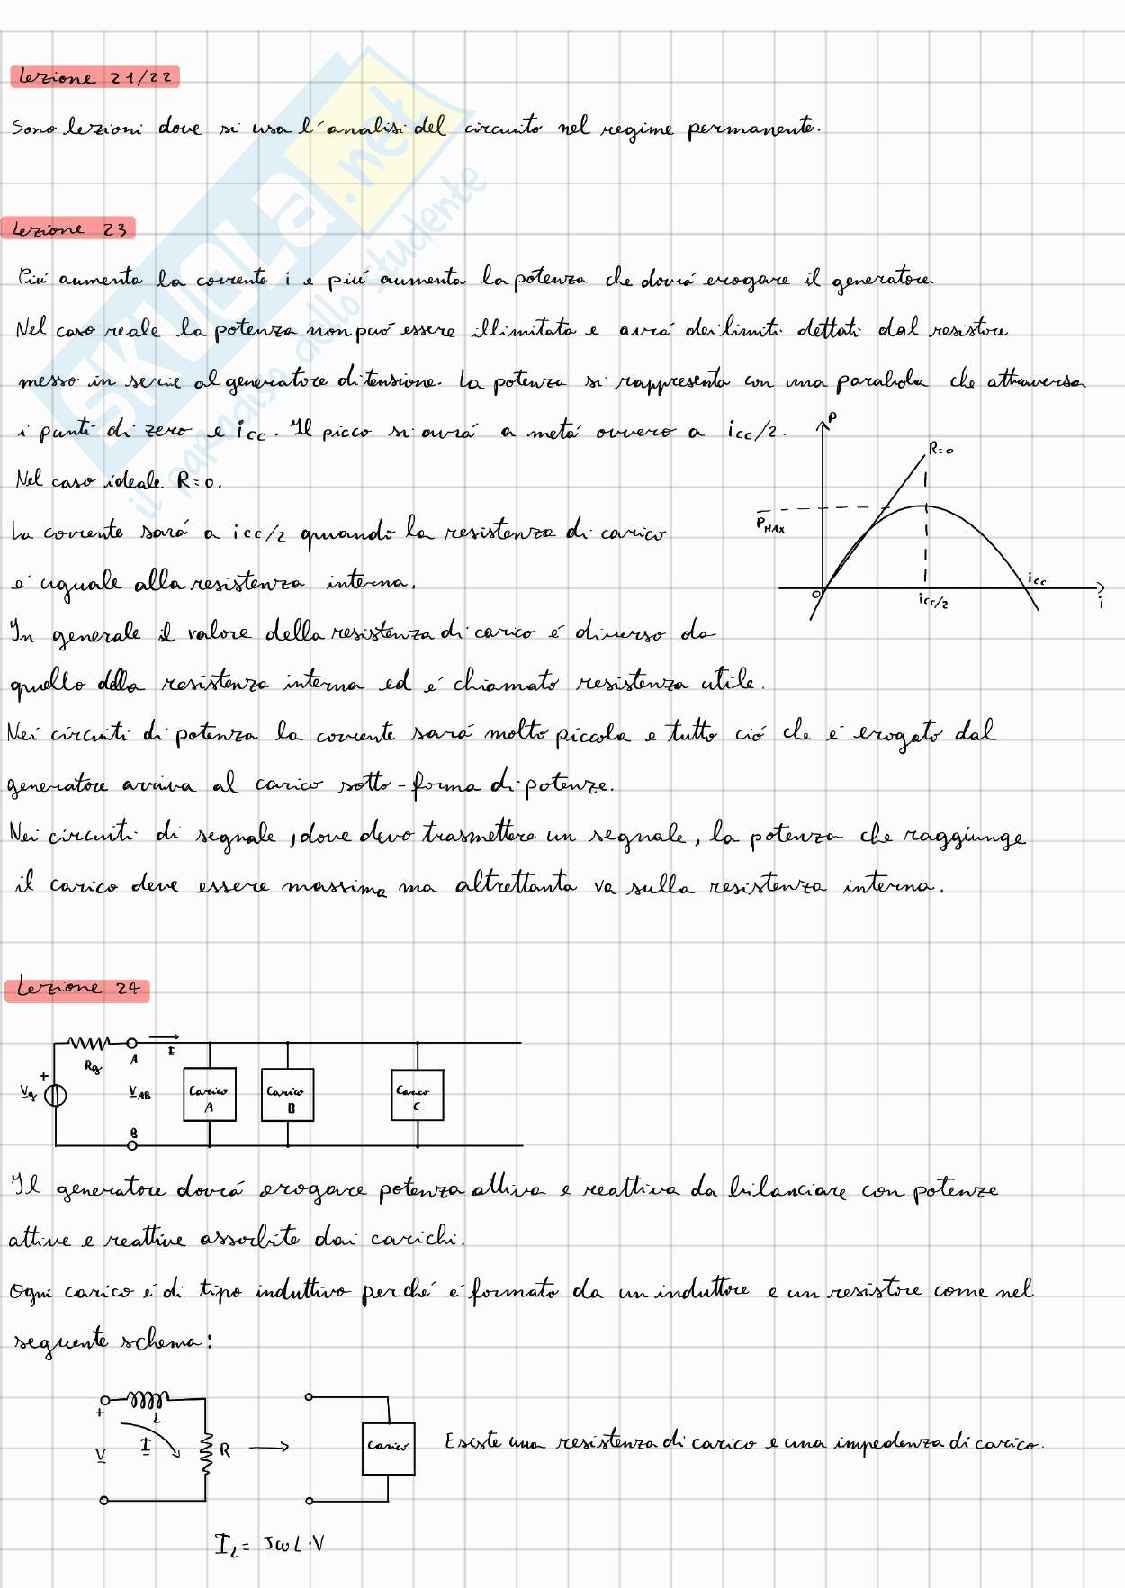 Lezione 21/22
Sono lezioni dove si usa l'analisi del circuito nel regime permanente.
Lezione 23
Più aumenta la corrente i e più aumenta la potenza che dovrà erogare il generatore.
Nel caso reale la potenza non può essere illimitata e avrà dei limiti dettati dal resistore
messo in serie al generatore di tensione. La potenza si rappresenta con una parabola che attraversa
i punti di zero e icc. Il picco si avrà a metà ovvero a icc/2.
Nel caso ideale R=0.
La corrente sarà a icc/2 quando la resistenza di carico
è uguale alla resistenza interna.
In generale il valore della resistenza di carico è diverso da
quello della resistenza interna ed è chiamato resistenza utile.
P
R=0
PMAX
0
icc/2
icc
i
Nei circuiti di potenza la corrente sarà molto piccola e tutto ciò che è erogato dal
generatore arriva al carico sotto-forma di potenze.
Nei circuiti di segnale, dove devo trasmettere un segnale, la potenza che raggiunge
il carico deve essere massima ma altrettanta va sulla resistenza interna.
Lezione 24
Rg A I
+ Vg VAB Carico A Carico B Carico C
B
Il generatore dovrà erogare potenza attiva e reattiva da bilanciare con potenze
attive e reattive assorbite dai carichi.
Ogni carico è di tipo induttivo perché è formato da un induttore e un resistore come nel
seguente schema:
+ L
V I R Carico Esiste una resistenza di carico e una impedenza di carico.
IL = JωL·V
SKUOLA.net
il paradiso dello studente